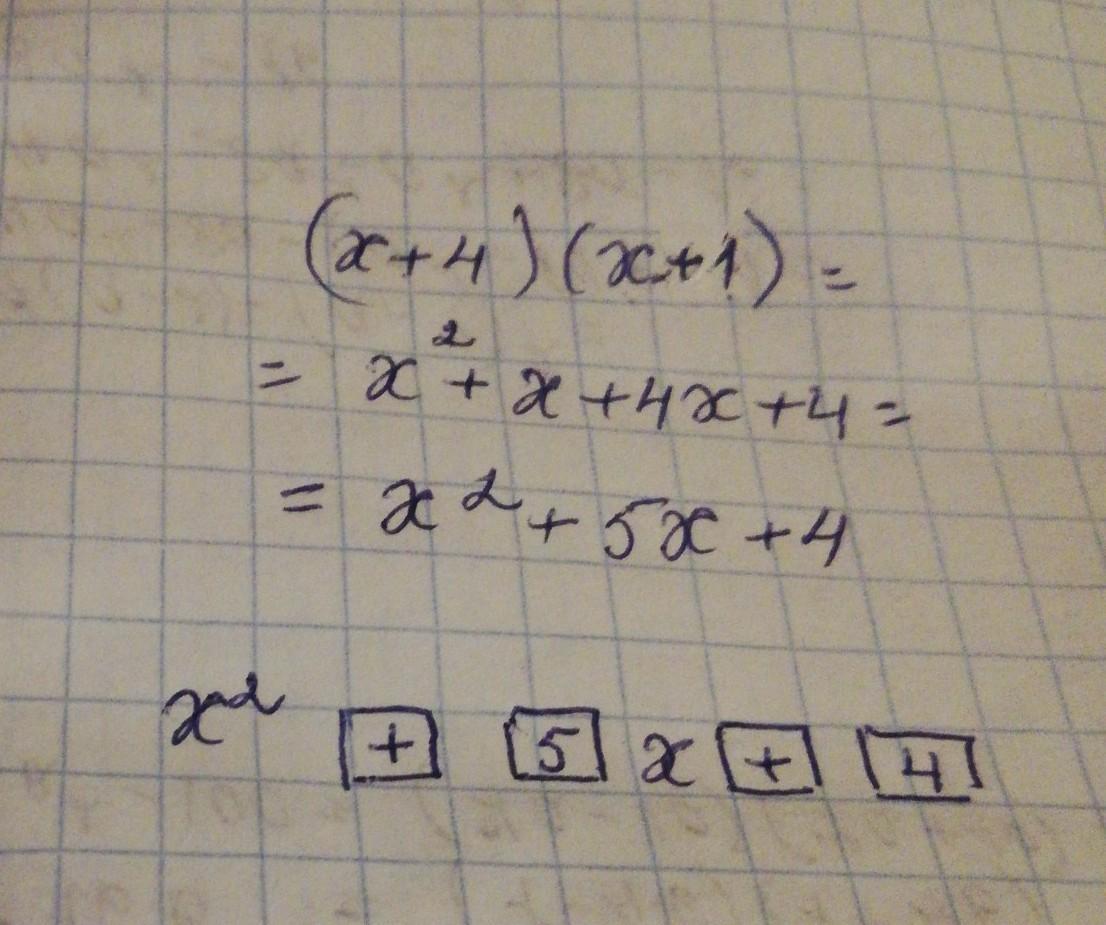 (x+4)(x+1)=
= x²+x+4x+4=
= x²+5x+4
x² + 5 x + 4